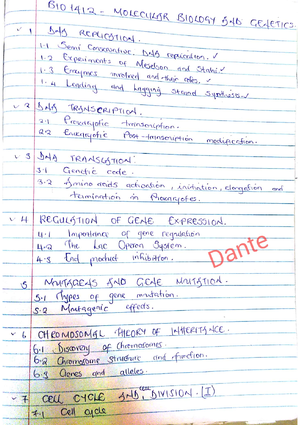 BIO 1412 - MOLECULAR BIOLOGY AND GENETICS.
✓ 1 DNA REPLICATION.
1.1 Semi Conservative DNA replication. ✓
1.2 Experiments of Meselson and Stahl ✓
1.3 Enzymes involved and their roles. ✓
1.4 Leading and Lagging strand Synthesis ✓
✓ 2 DNA TRANSCRIPTION.
2.1 Prokaryotic transcription.
2.2 Eukaryotic Post-transcription modification.
✓ 3 DNA TRANSLATION
3.1 Genetic code.
3.2 Amino acids activation, initiation, elongation and
termination in Prokaryotes.
✓ 4 REGULATION OF GENE EXPRESSION.
4.1 Importance of gene regulation
4.2 The Lac Operon System.
4.3 End product inhibition.
Dante
5 MUTAGENS AND GENE MUTATION.
5.1 Types of gene mutation.
5.2 Mutagenic effects.
✓ 6 CHROMOSOMAL THEORY OF INHERITANCE.
6.1 Discovery of Chromosomes.
6.2 Chromosome structure and function.
6.3 Genes and alleles.
✓ 7 CELL CYCLE AND CELL DIVISION. (I)
7.1 Cell cycle